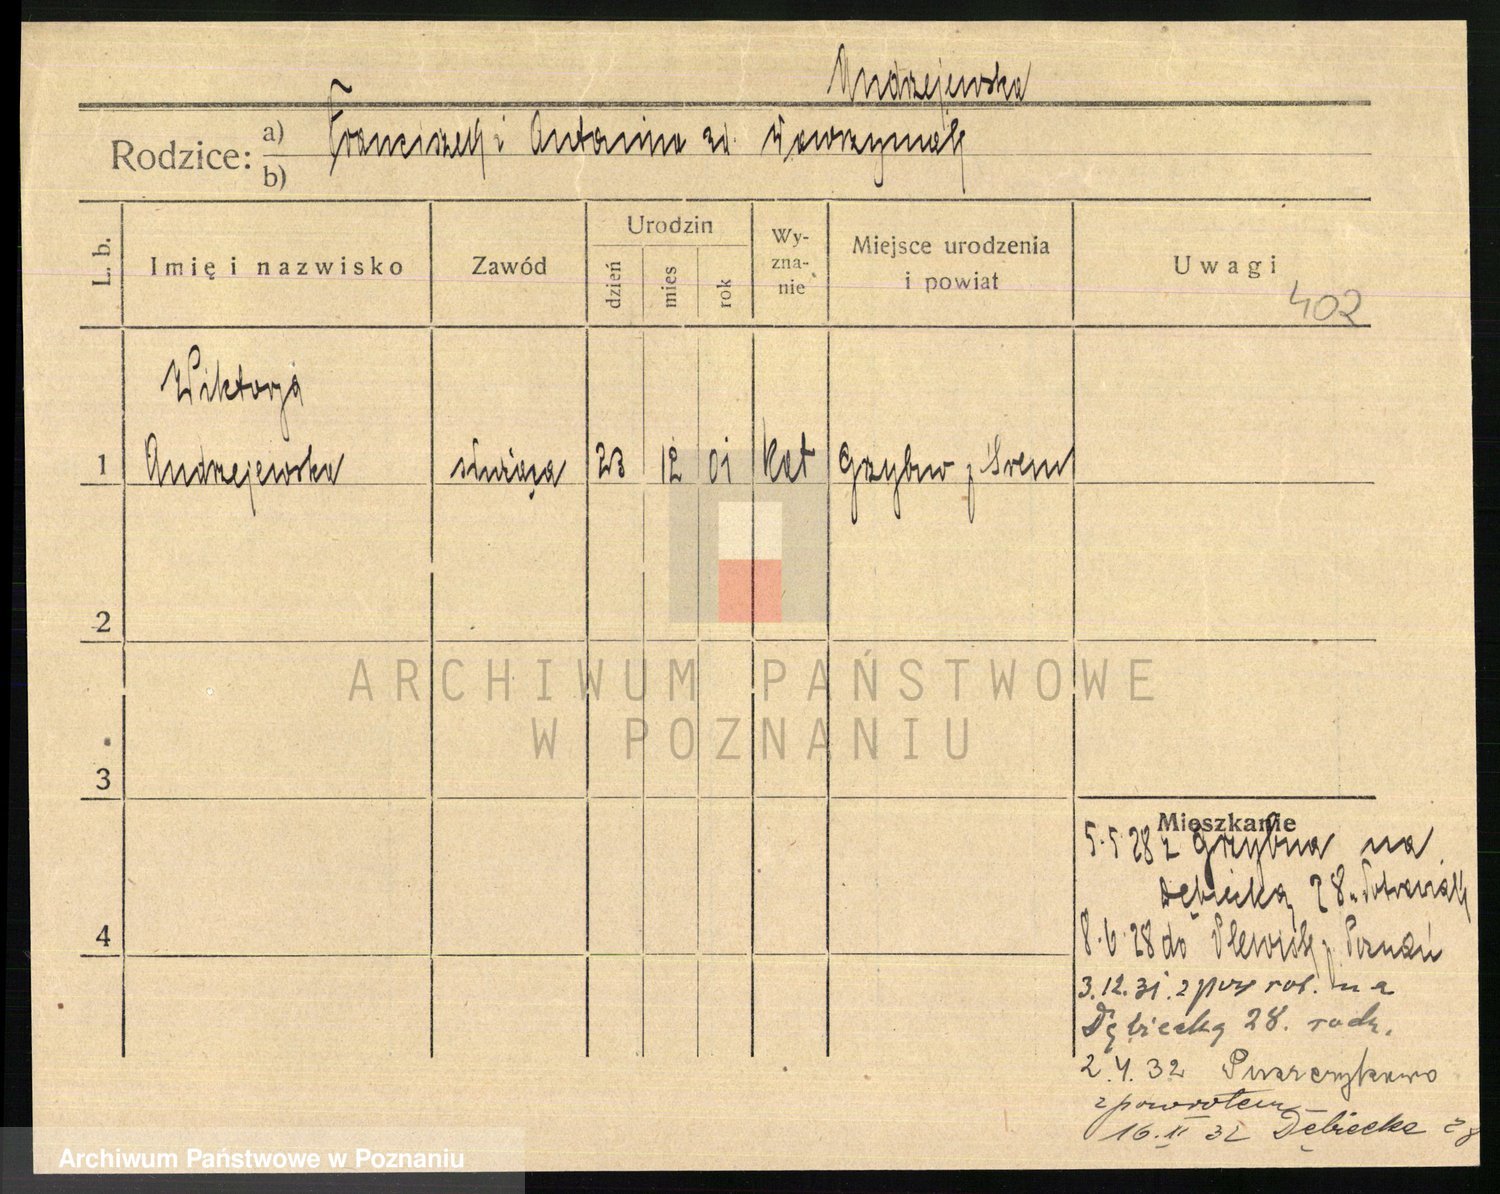 Andrzejewska
Rodzice: a) Franciszek i Antonina zd. Wawrzyniak
b)
L. b.
Imię i nazwisko
Zawód
Urodzin
dzień
mies
rok
Wy-
zna-
nie
Miejsce urodzenia
i powiat
Uwagi
402
Wiktorja
1 Andrzejewska służąca 23 12 01 kat Grzybno p Śrem
2
ARCHIWUM PAŃSTWOWE
W POZNANIU
3
Mieszkanie
5.5.28 z Grzybna na
Dębiecką 28
4
8.6.28 do Plewisk p. Poznań
3.12.31. z pow rot. na
Dębiecką 28. rodz.
2.4.32 Puszczykowo
z powrotem
16.II 32 Dębiecka 28
Archiwum Państwowe w Poznaniu